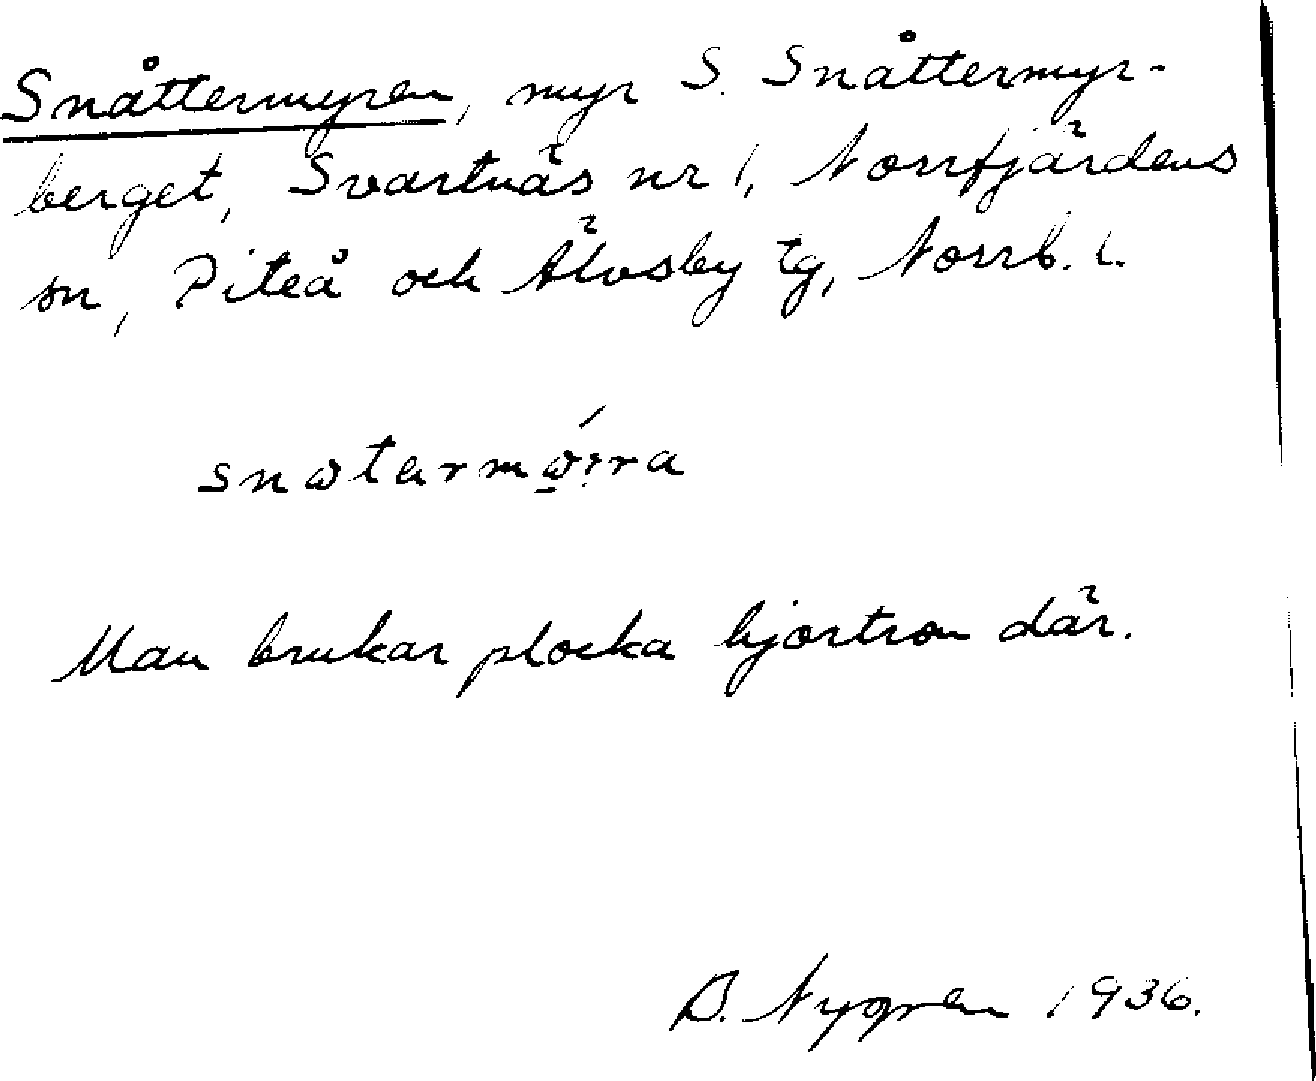 Snåttermyren, myr S. Snåttermyr-
berget, Svartnäs nr 1, Norrfjärdens
sn, Piteå och Älvsby tg, Norrb. l.
Man brukar plocka hjortron där.
B. Nygren 1936.